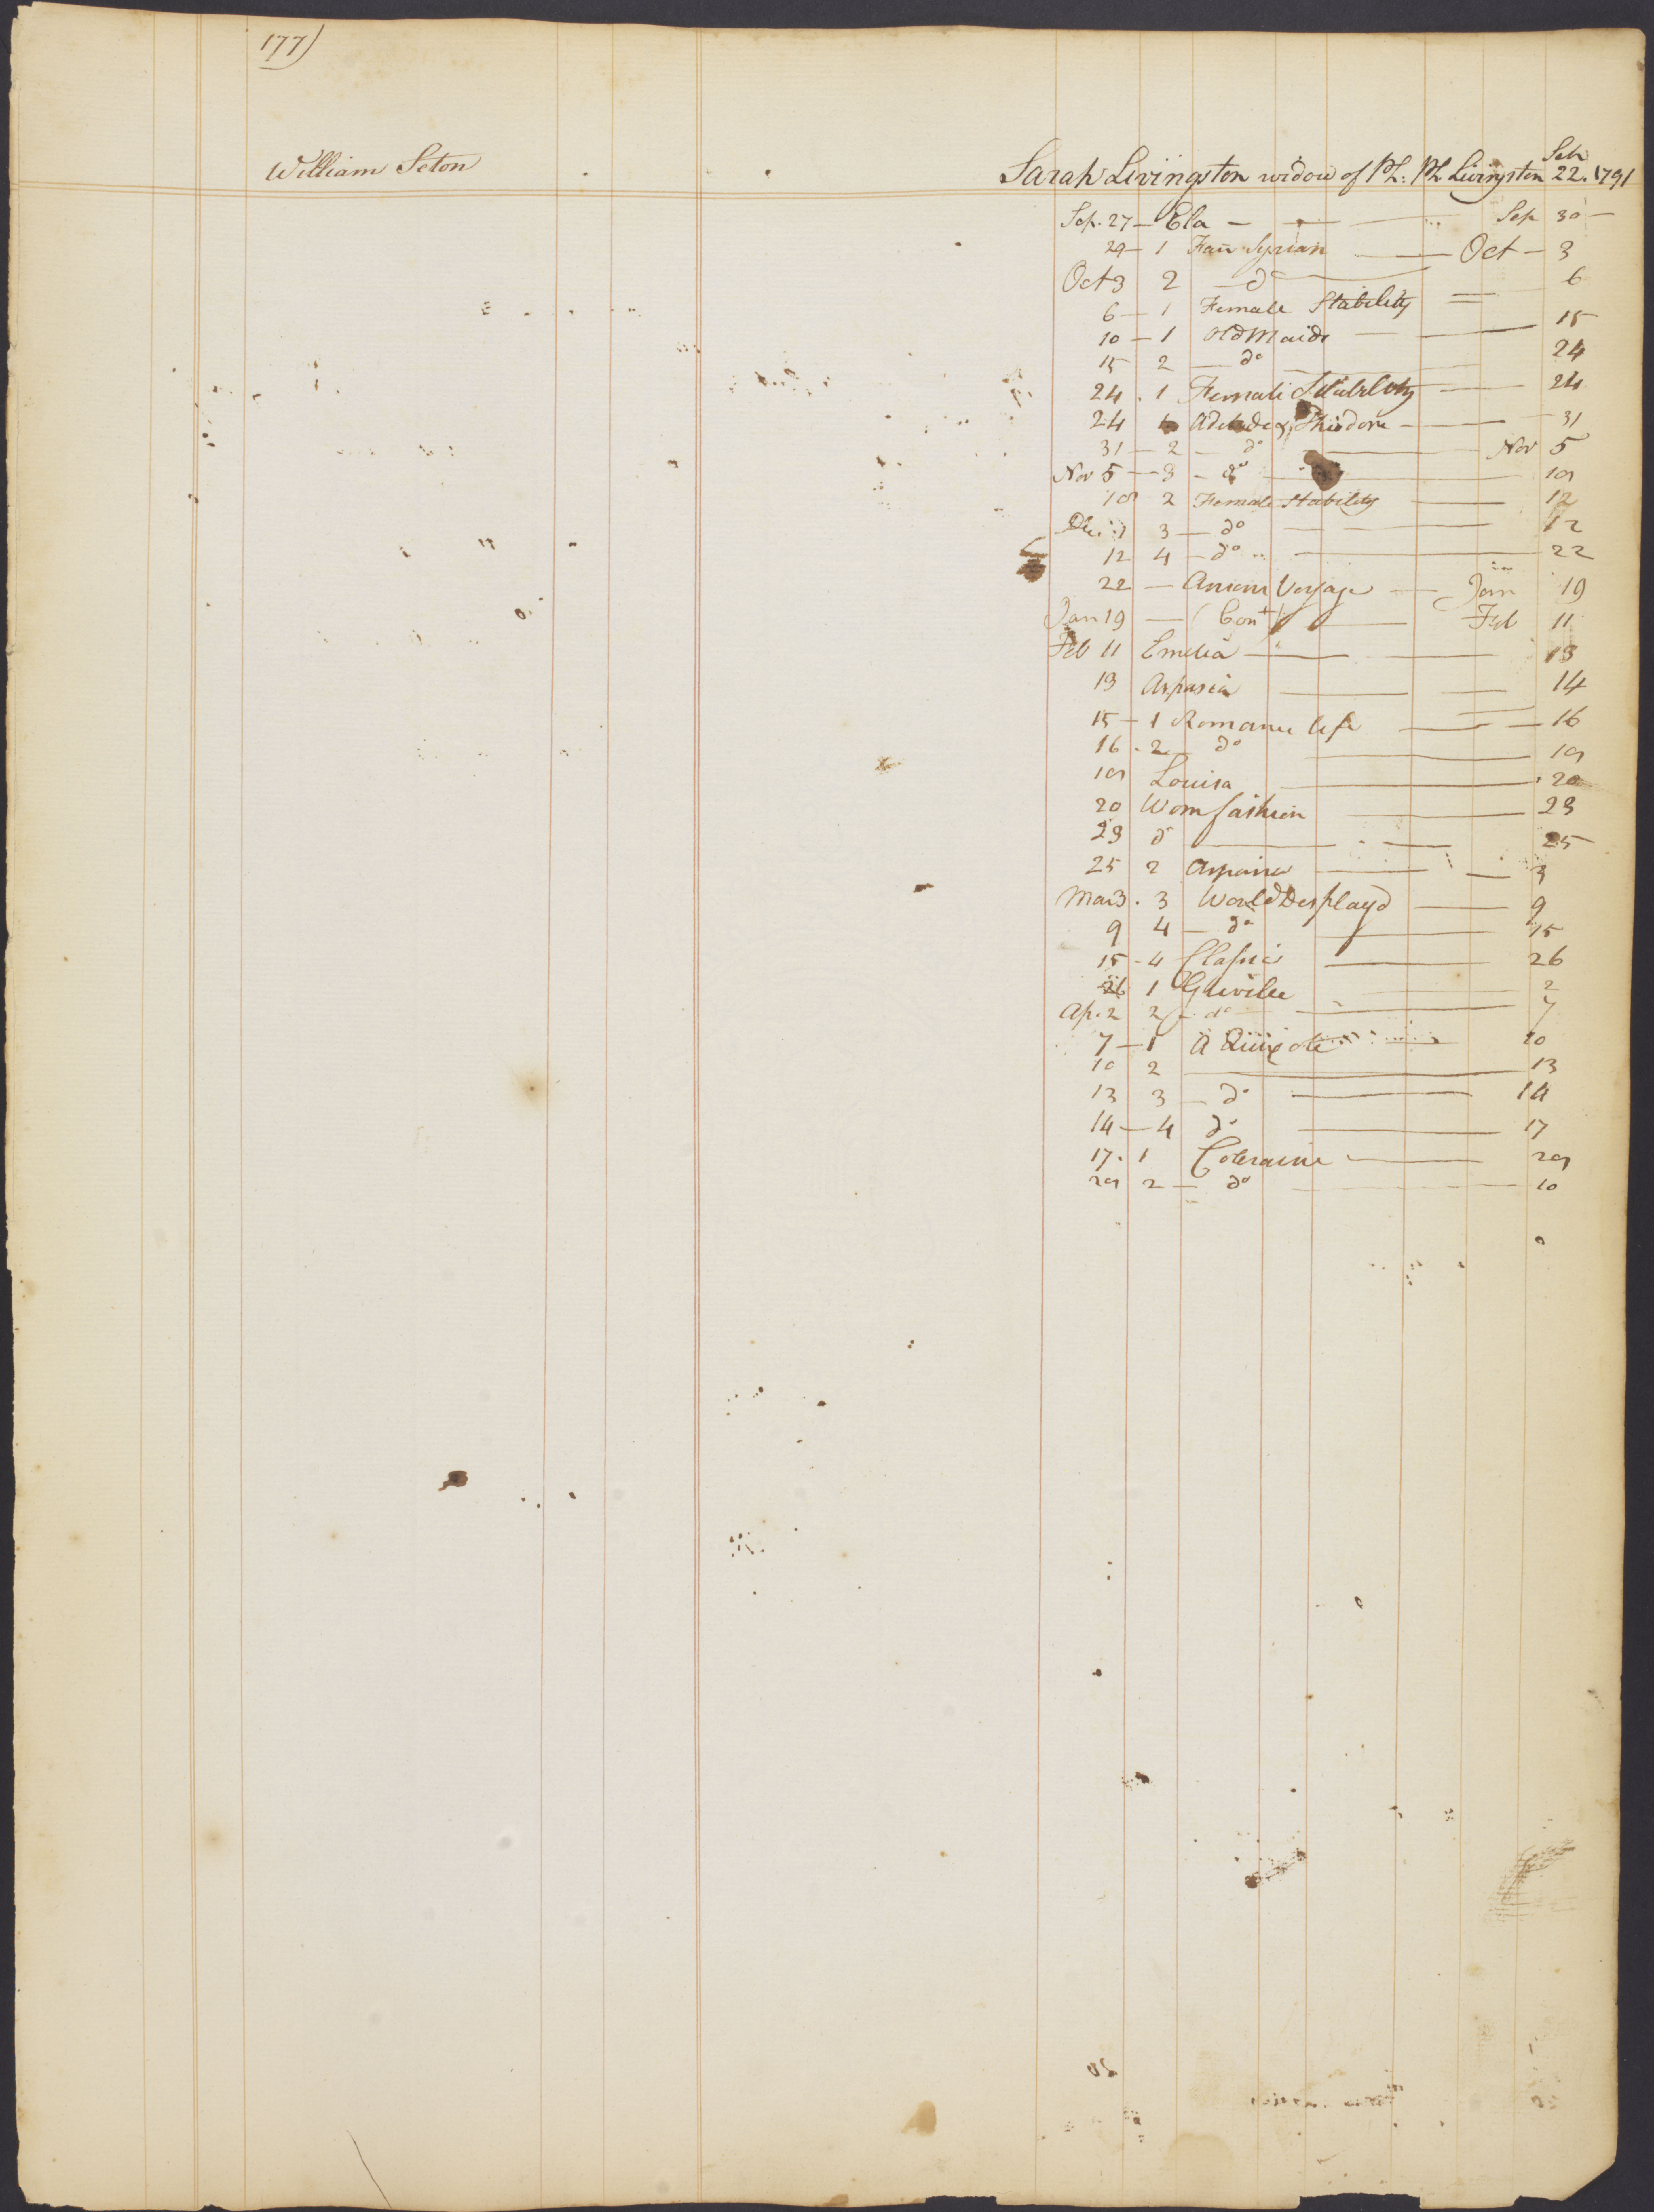 177)
William Seton
Sarah Livingston widow of Ph: Ph Livingston Feb 22. 1791
Sep. 27 — Ela — Sep 30 —
29 — 1 Fair Syrian — Oct — 3
Oct 3 2 — do — 6
6 — 1 Female Stability
10 — 1 Old Maids — 15
15 2 — do 24
24 . 1 Female Stability — 24
24 Adelaide & Theodore — 31
31 — 2 — do — Nov 5
Nov 5 — 3 — do — 10
10 2 Female Stability — 12
Dec. 3 — do — 12
12 4 — do — 22
22 — Voyage — Jan 19
Jan 19 — (Cont) — Feb 11
Feb 11 Emelia — 13
13 Aspasia — 14
15 — 1 Romance life — 16
16 . 2 — do — 19
19 Louisa — 20
20 Wom fashion — 23
23 do — 25
25 2 Aspasia — 3
Mar 3 . 3 World Displayd — 9
9 4 — do — 15
15 - 4 — 26
26 1 — 2
Ap. 2 2 — do — 7
7 — 1 A Quixote — 10
10 2 — 13
13 3 — do — 14
14 — 4 do — 17
17 . 1 Coleraine — 29
29 2 — do — 10